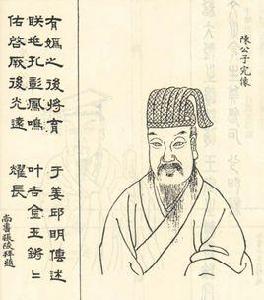 陳公子完像
有媯之後將育于姜邱明傳述
朕兆孔彰鳳鳴叶吉金玉鏘〻
佑啓厥後光遠燿長
尚書張陵拜題